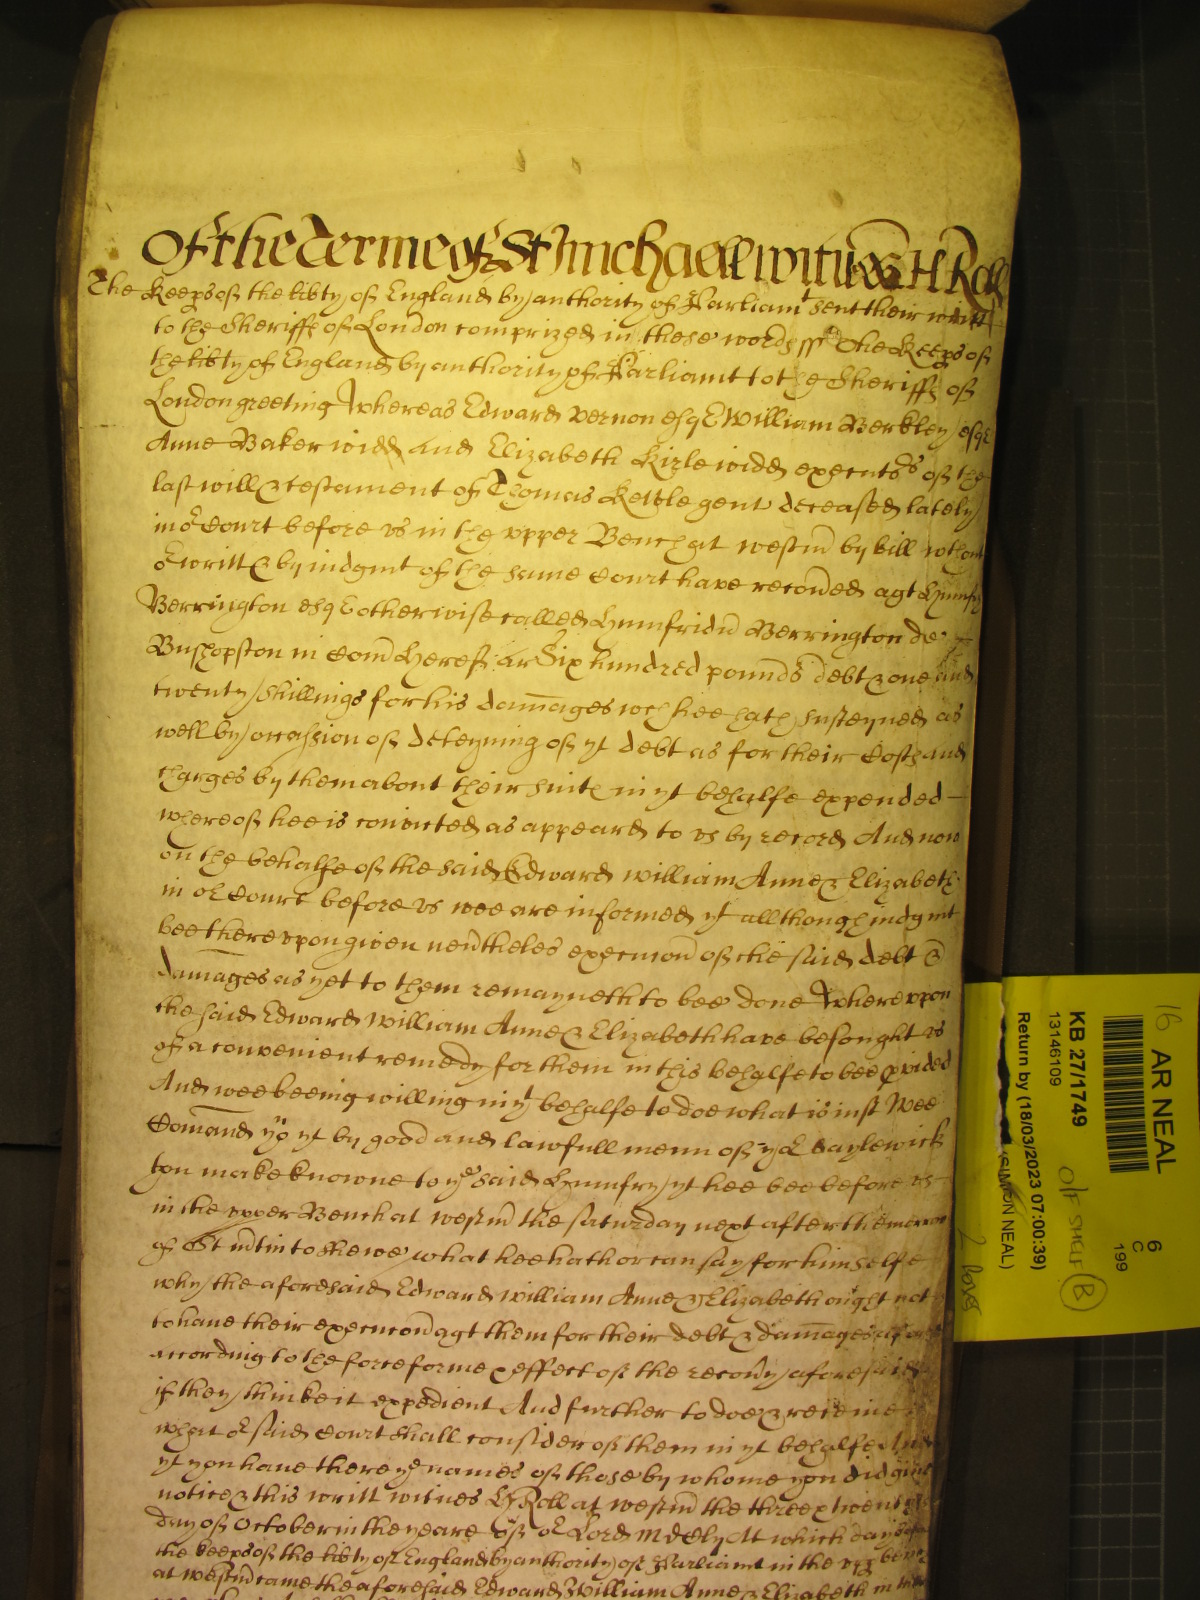 Of the Terme of St Michaell witnes H Roll
The Keeps of the libty of England by authority of Parliamt sent their writt
to the Sheriffs of London comprized in these words ss The Keeps of
the libty of England by authority of Parliamt to the Sheriffs of
London greeting Whereas Edward Vernon esqr William Berkley esqr
Anne Baker widd and Elizabeth Kirle widd executrs of the
last will & testament of Thomas Kettle gent deceased lately
in or Court before vs in the vpper Bench at westm by bill wthout
or writt & by iudgmt of the same Court have recoued agt Humfry
Berrington esqr otherwise called Humfridu Berrington de
Bushopston in Com Heref ar Six hundred pounds debt & one and
twenty shillings for his damages wch hee hath susteyned as
well by occassion of deteyning of yt debt as for their Costs and
charges by them about their suite in yt behalfe expended
whereof hee is convicted as appeares to vs by record And now
on the behalfe of the said Edward William Anne & Elizabeth
in or Court before vs wee are informed yt allthough iudgmt
bee therevpon given neutheles execucion of the said debt &
damages as yet to them remayneth to bee done Wherevpon
the said Edward William Anne & Elizabeth have besought vs
of a convenient remedy for them in this behalfe to bee pvided
And wee beeing willing in yt behalfe to doe what is iust Wee
Comand you yt by good and lawfull menn of yor Baylewick
you make knowne to ye said Humfry yt hee bee before vs
in the vpper Bench at westm the saturday next after the morrow
of St Mtin to shewe what hee hath or can say for himselfe
why the aforesaid Edward William Anne & Elizabeth ought not
to haue their execucon agt them for their debt & damages afor
according to the force forme & effect of the recouy aforesaid
if they thinke it expedient And further to doe & receiue
what or said Court shall consider of them in yt behalfe And
yt you haue there ye names of those by whome you did giue
notice & this writt witnes H Roll at westm the three & twent
day of October in the yeare of or Lord MDCLy At which day
the keeps of the libty of England by authority of Parliamt in the vpp bench
at westm came the aforesaid Edward William Anne & Elizabeth in
16 AR NEAL
KB 27/1749
13146109
Return by (18/03/2023 07:00:39)
(SIMON NEAL)
6
C
199
O/F SHELF B
2 boxes